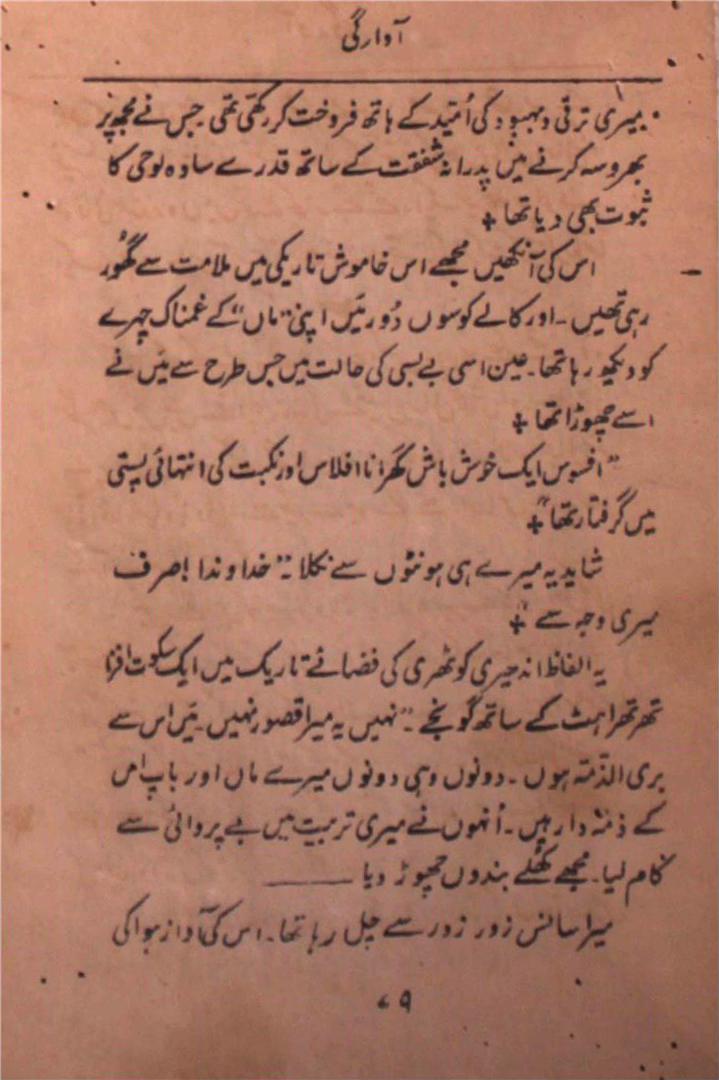 آوارگی
میری ترقی و بہبود کی اُمید کے ہاتھ فروخت کر رکھی تھی۔ جس نے مجھ پر
بھروسہ کرنے میں پدرانہ شفقت کے ساتھ قدرے سادہ لوحی کا
ثبوت بھی دیا تھا +
اس کی آنکھیں مجھے اس خاموش تاریکی میں ملامت سے گھُور
رہی تھیں۔ اور کالے کوسوں دُور مَیں اپنی "ماں" کے غمناک چہرے
کو دیکھ رہا تھا۔ عین اسی بے بسی کی حالت میں جس طرح سے مَیں نے
اسے چھوڑا تھا +
"افسوس ایک خوش باش گھرانا افلاس اور نکبت کی انتہائی پستی
میں گرفتار تھا" +
شاید یہ میرے ہی ہونٹوں سے نکلا۔ "خداوندا! صرف
میری وجہ سے" +
یہ الفاظ اندھیری کوٹھری کی فضائے تاریک میں ایک سکوت افزا
تھرتھراہٹ کے ساتھ گونجے۔ "نہیں یہ میرا قصور نہیں۔ مَیں اس سے
بری الذمّہ ہوں۔ دونوں وہی دونوں میرے ماں اور باپ اس
کے ذمّہ دار ہیں۔ اُنہوں نے میری تربیت میں بے پروائی سے
کام لیا۔ مجھے کھُلے بندوں چھوڑ دیا ———
میرا سانس زور زور سے چل رہا تھا۔ اس کی آواز ہوا کی
۷۹